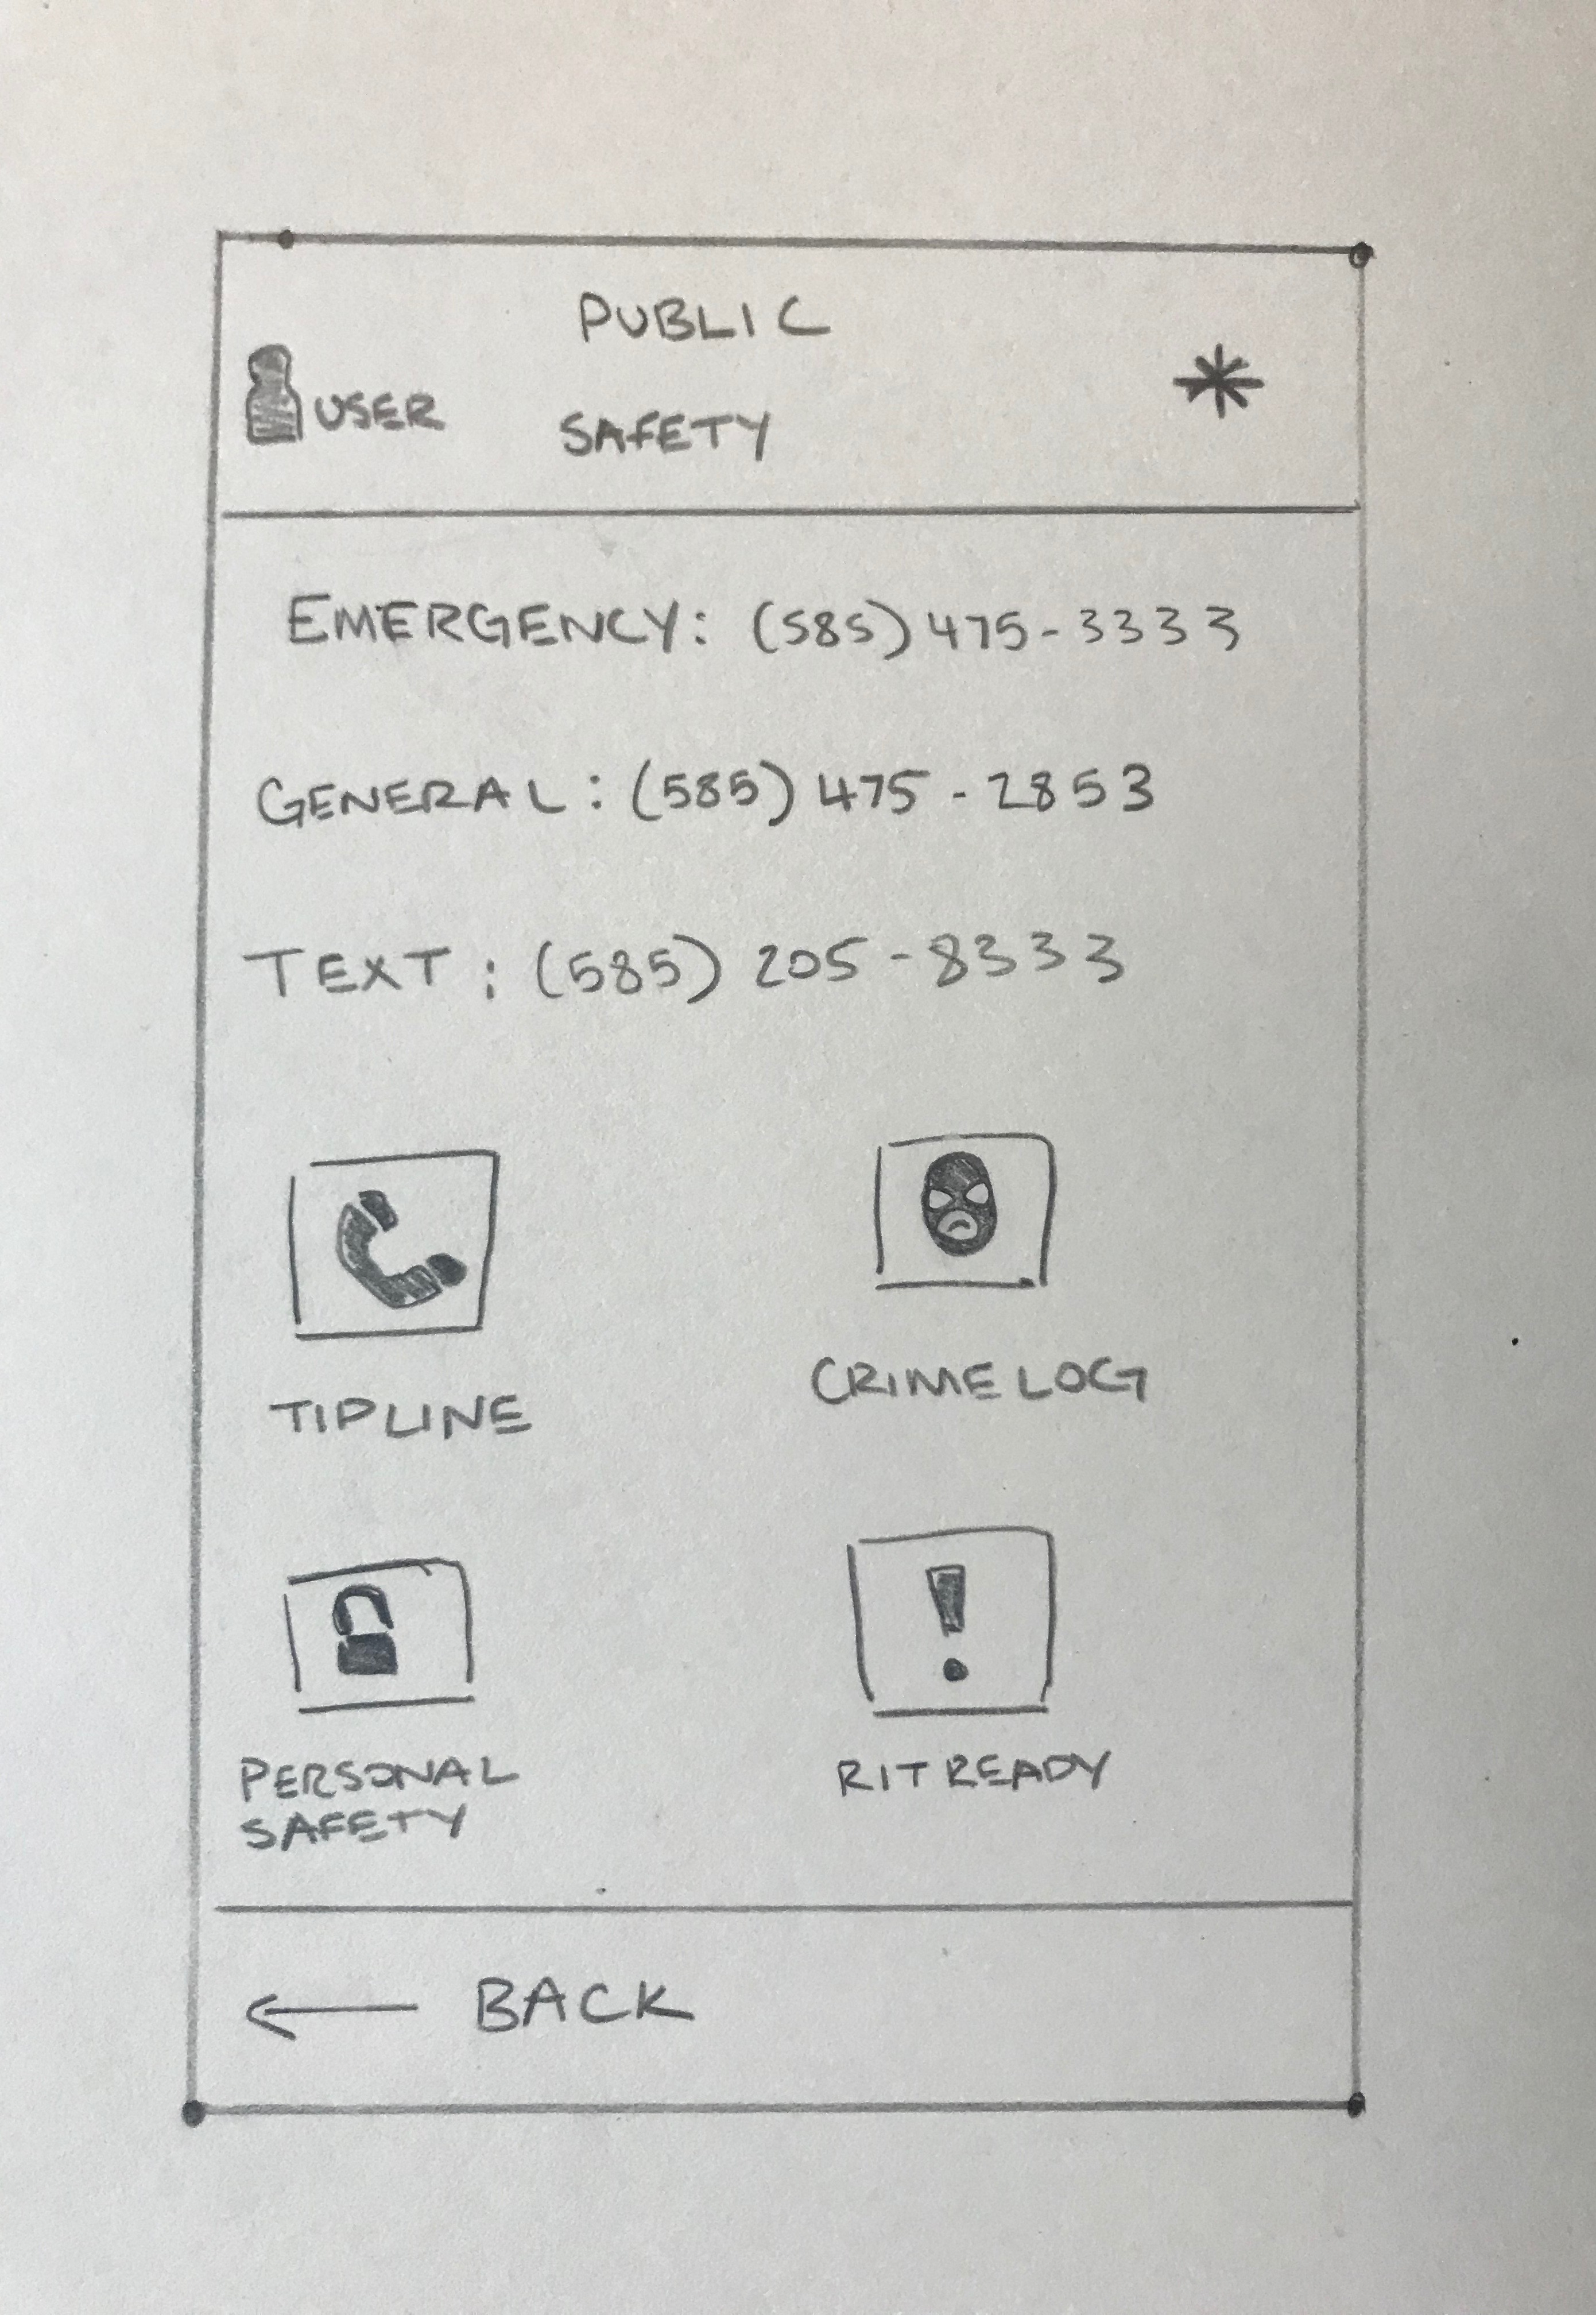 PUBLIC
USER
SAFETY
EMERGENCY: (585) 475-3333
GENERAL: (585) 475-2853
TEXT: (585) 205-8333
TIPLINE
CRIME LOG
PERSONAL
SAFETY
RIT READY
BACK